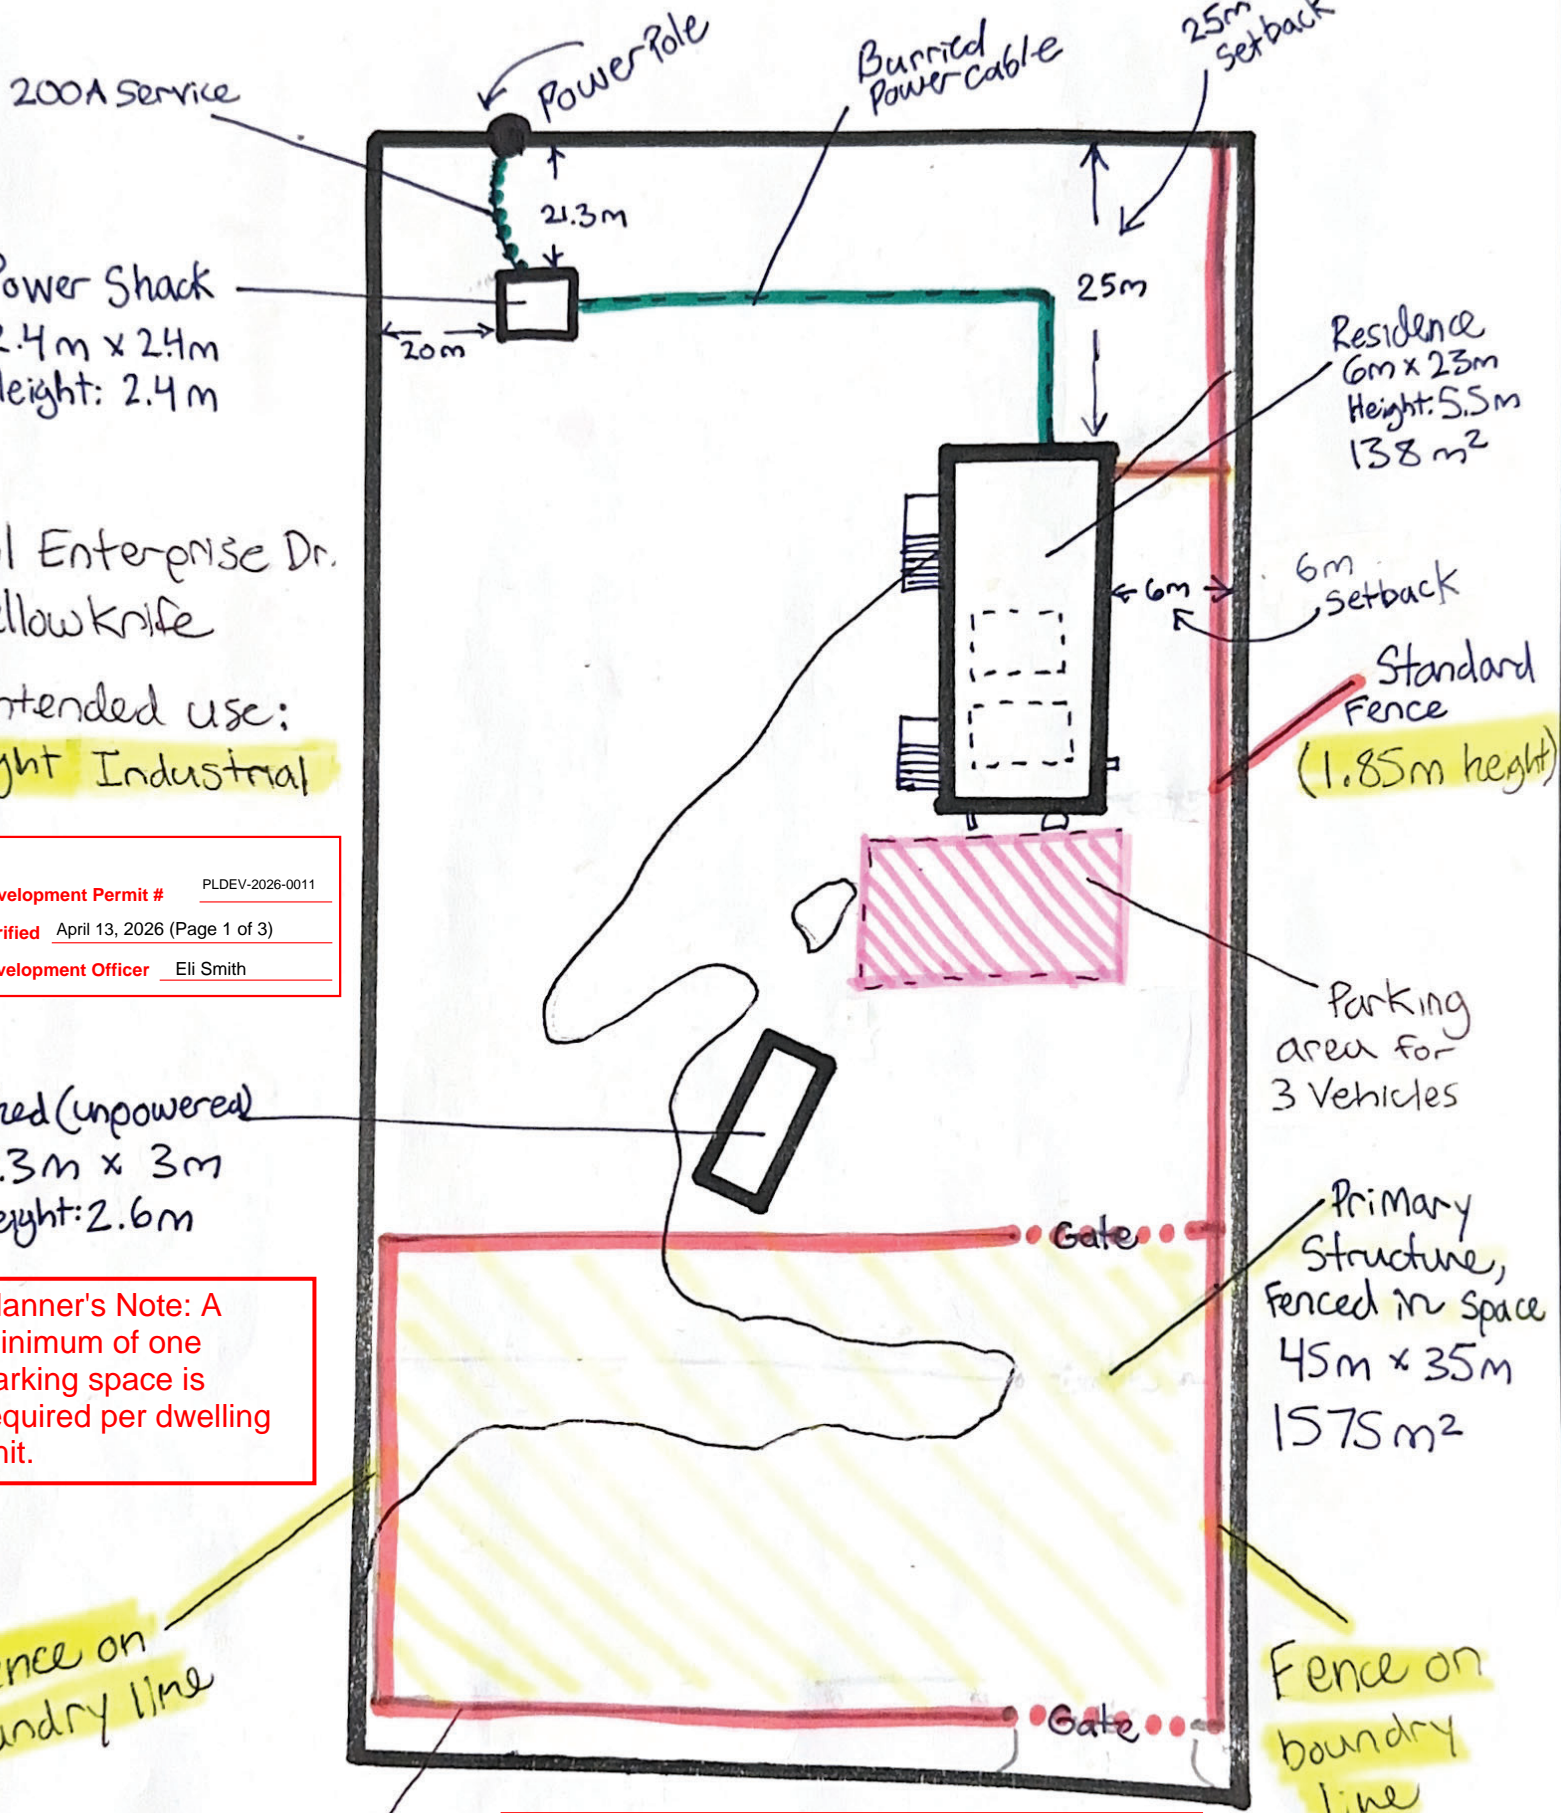 200A Service
Power Pole
Burried
Power cable
25m
setback
21.3m
25m
20m
ower Shack
2.4m x 2.4m
Height: 2.4m
Residence
6m x 23m
Height: 5.5m
138 m²
l Enterprise Dr.
llowknife
ntended use:
ght Industrial
6m
6m
setback
Standard
Fence
(1.85m heght)
velopment Permit # PLDEV-2026-0011
rified April 13, 2026 (Page 1 of 3)
velopment Officer Eli Smith
Parking
area for
3 Vehicles
hed (unpowered)
.3m x 3m
eight: 2.6m
Gate
Primary
Structure,
Fenced in Space
45m x 35m
1575m²
lanner's Note: A
inimum of one
arking space is
equired per dwelling
nit.
ence on
undry line
Gate
Fence on
boundry
line